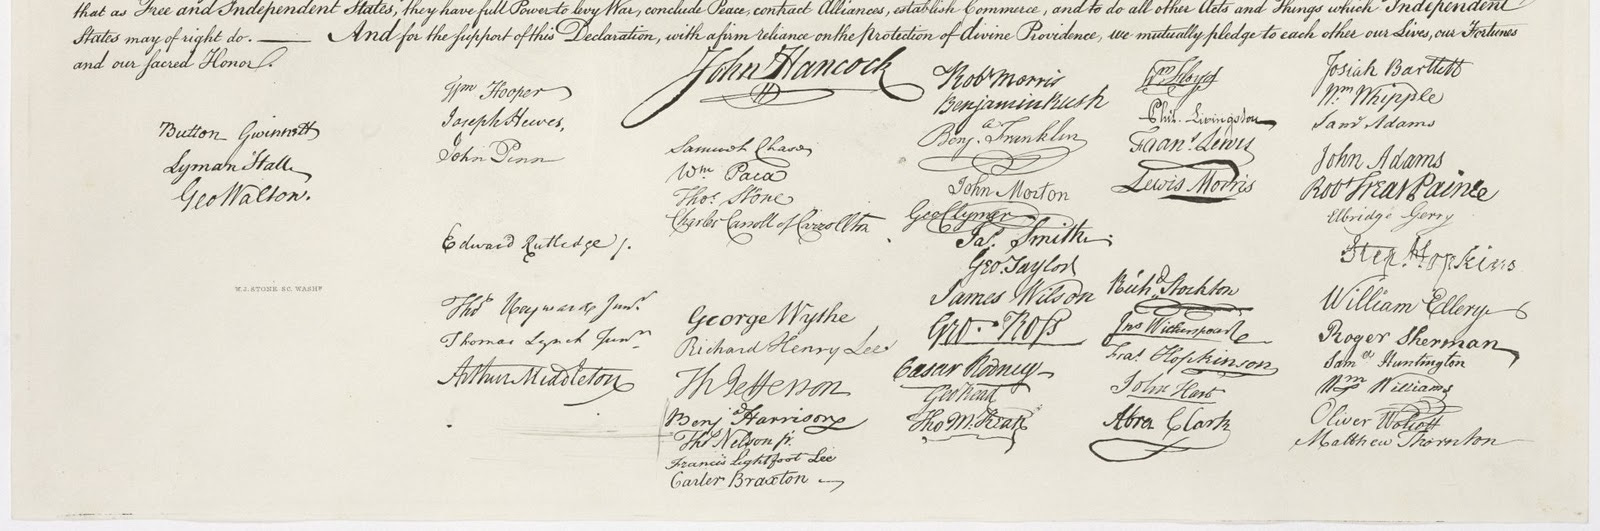 that as Free and Independent States, they have full Power to levy War, conclude Peace, contract Alliances, establish Commerce, and to do all other Acts and Things which Independent
States may of right do. — And for the support of this Declaration, with a firm reliance on the protection of divine Providence, we mutually pledge to each other our Lives, our Fortunes
and our sacred Honor.
Button Gwinnett
Lyman Hall
Geo Walton.
M.J. STONE SC. WASHN
Wm Hooper
Joseph Hewes,
John Penn
Edward Rutledge /.
Thos Heyward Junr.
Thomas Lynch Junr.
Arthur Middleton
John Hancock
Samuel Chase
Wm Paca
Thos. Stone
Charles Carroll of Carrollton
George Wythe
Richard Henry Lee
Th Jefferson
Benja Harrison
Thos Nelson jr.
Francis Lightfoot Lee
Carter Braxton
Robt Morris
Benjamin Rush
Benja. Franklin
John Morton
Geo Clymer
Jas. Smith.
Geo. Taylor
James Wilson
Geo. Ross
Caesar Rodney
Geo Read
Tho M:Kean
Wm Floyd
Phil. Livingston
Frans. Lewis
Lewis Morris
Richd. Stockton
Jno Witherspoon
Fras. Hopkinson
John Hart
Abra Clark
Josiah Bartlett
Wm Whipple
Saml Adams
John Adams
Robt Treat Paine
Elbridge Gerry
Step. Hopkins
William Ellery
Roger Sherman
Saml Huntington
Wm Williams
Oliver Wolcott
Matthew Thornton